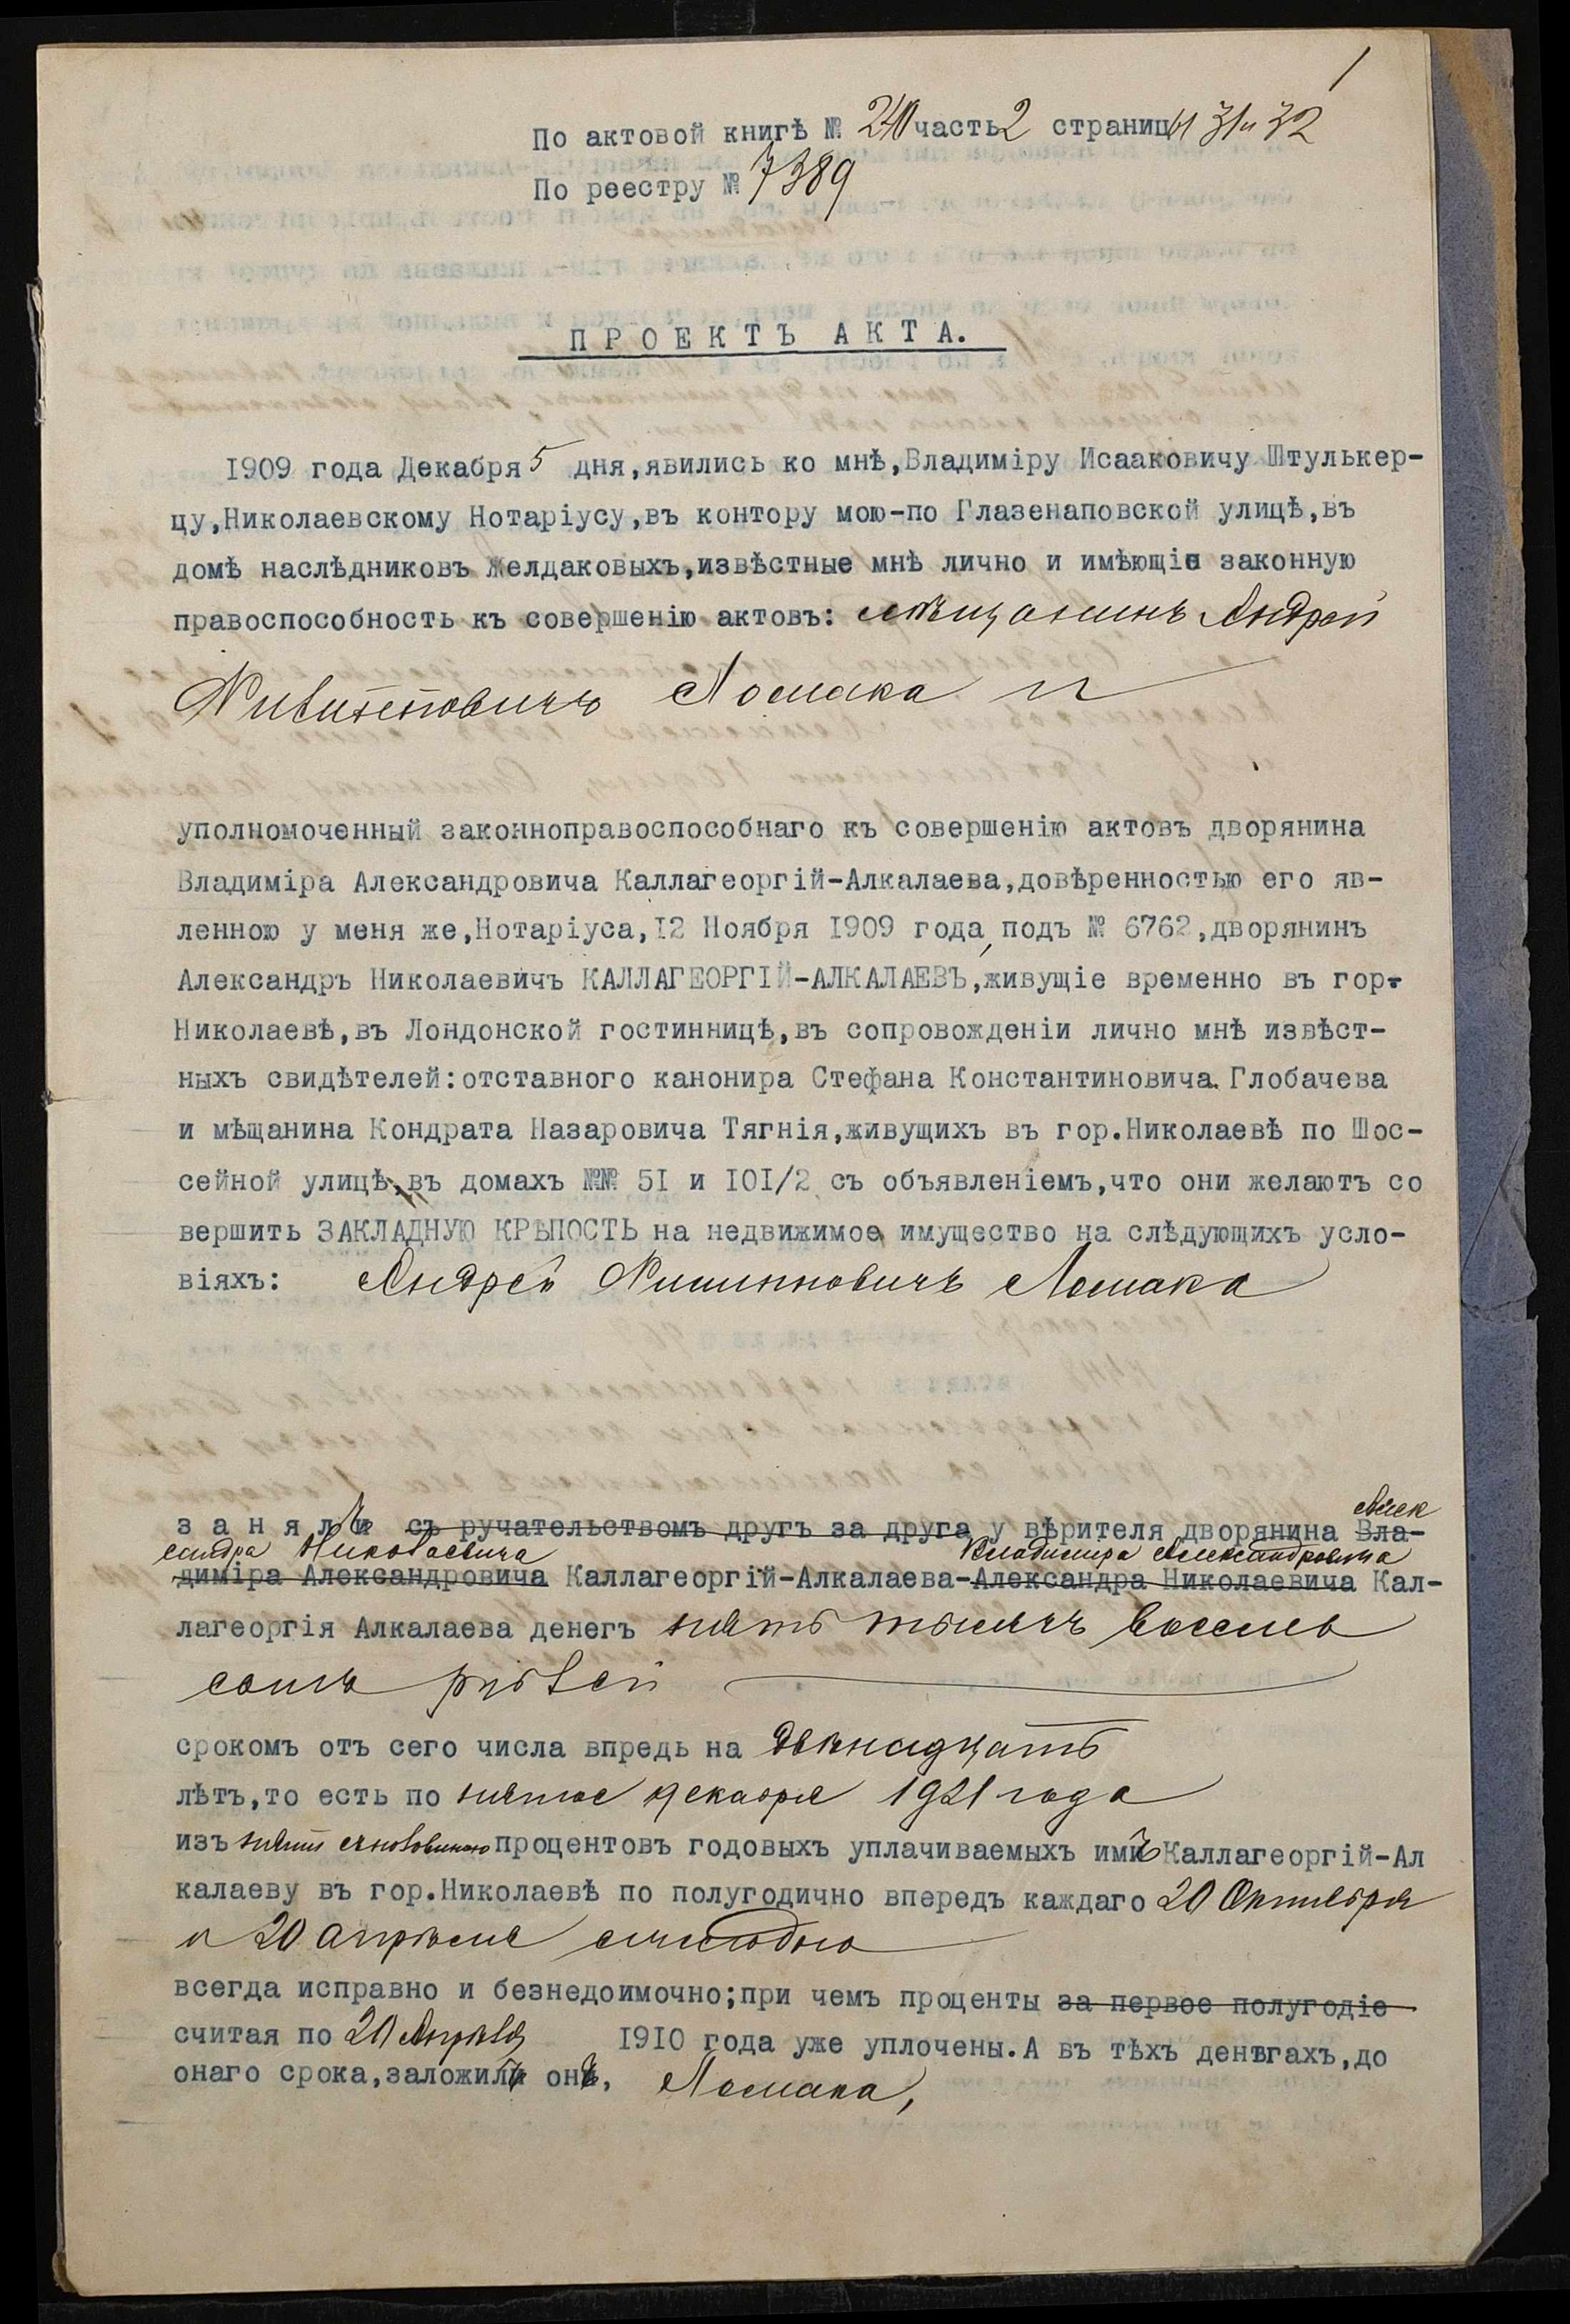 1
По актовой книгѣ № 240 часть 2 страницы 31 и 32
По реестру № 7389
ПРОЕКТЪ АКТА.
1909 года Декабря 5 дня,явились ко мнѣ,Владиміру Исааковичу Штулькер-
цу,Николаевскому Нотаріусу,въ контору мою-по Глазенаповской улицѣ,въ
домѣ наслѣдниковъ Желдаковыхъ,извѣстные мнѣ лично и имѣющіе законную
правоспособность къ совершенію актовъ: мѣщанинъ Андрей
Ломака и
уполномоченный законноправоспособнаго къ совершенію актовъ дворянина
Владиміра Александровича Каллагеоргій-Алкалаева,довѣренностью его яв-
ленною у меня же,Нотаріуса,12 Ноября 1909 года подъ № 6762,дворянинъ
Александръ Николаевичъ КАЛЛАГЕОРГІЙ-АЛКАЛАЕВЪ,живущіе временно въ гор.
Николаевѣ,въ Лондонской гостинницѣ,въ сопровожденіи лично мнѣ извѣст-
ныхъ свидѣтелей:отставного канонира Стефана Константиновича Глобачева
и мѣщанина Кондрата Назаровича Тягнія,живущихъ въ гор.Николаевѣ по Шос-
сейной улицѣ,въ домахъ №№ 51 и 101/2 съ объявленіемъ,что они желаютъ со
вершить ЗАКЛАДНУЮ КРѢПОСТЬ на недвижимое имущество на слѣдующихъ усло-
віяхъ: Андрей Ломака
Алек
занялъ съ ручательствомъ другъ за друга у вѣрителя дворянина Вла-
сандра Николаевича Владимира Александровича
диміра Александровича Каллагеоргій-Алкалаева-Александра Николаевича Кал-
лагеоргія Алкалаева денегъ пять тысячъ восемь
сотъ рублей
срокомъ отъ сего числа впредь на двѣнадцать
лѣтъ,то есть по пятое декабря 1921 года
изъ пяти съ половиною процентовъ годовыхъ уплачиваемыхъ имъ Каллагеоргій-Ал
калаеву въ гор.Николаевѣ по полугодично впередъ каждаго 20 Октября
и 20 апрѣля ежегодно
всегда исправно и безнедоимочно;при чемъ проценты за первое полугодіе
считая по 20 Апрѣля 1910 года уже уплочены.А въ тѣхъ деньгахъ,до
онаго срока,заложилъ онъ, Ломака,